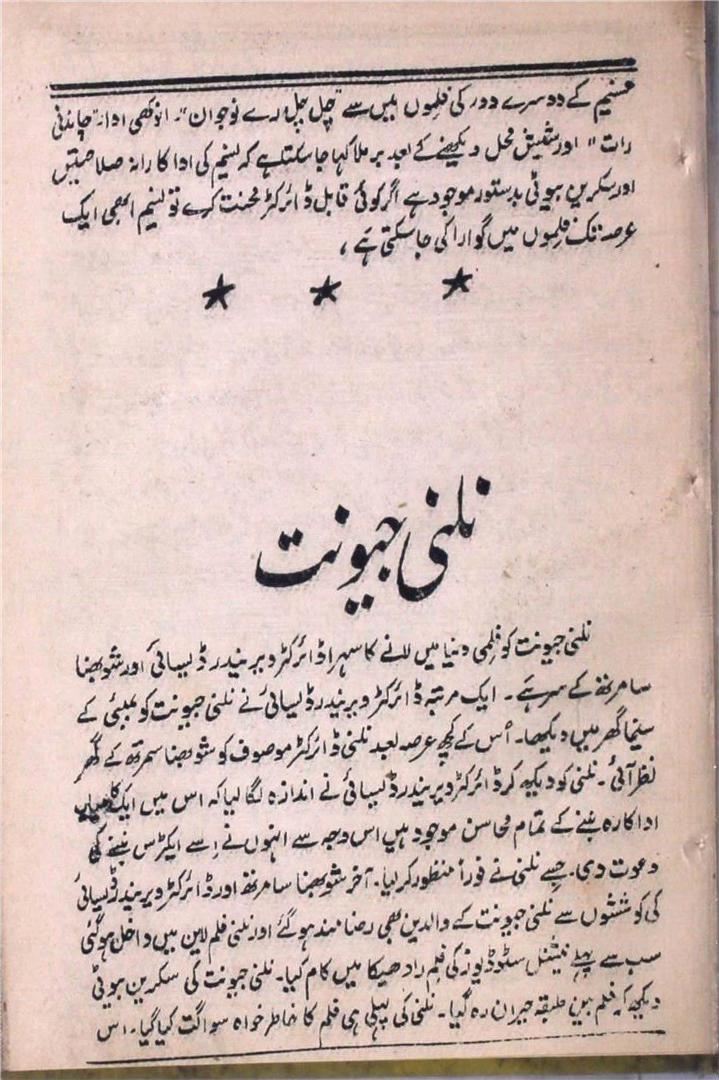 نسیم کے دوسرے دور کی فلموں میں سے "چل چل رے نوجوان"۔ انوکھی ادا۔ "چاندنی
رات" اور شیش محل دیکھنے کے بعد برملا کہا جاسکتا ہے کہ نسیم کی اداکارانہ صلاحیتیں
اور سکرین بیوٹی بدستور موجود ہے اگر کوئی قابل ڈائرکٹر محنت کرے تو نسیم ابھی ایک
عرصہ تک فلموں میں گوارا کی جاسکتی ہے ،
★ ★ ★
نلنی جیونت
نلنی جیونت کو فلمی دنیا میں لانے کا سہرا ڈائرکٹر ویریندر ڈیسائی اور شوبھنا
سامرتھ کے سر ہے۔ ایک مرتبہ ڈائرکٹر ویریندر ڈیسائی نے نلنی جیونت کو بمبئی کے
سینما گھر میں دیکھا۔ اُس کے کچھ عرصہ بعد نلنی ڈائرکٹر موصوف کو شوبھنا سمرتھ کے گھر
نظر آئی۔ نلنی کو دیکھ کر ڈائرکٹر ویریندر ڈیسائی نے اندازہ لگا لیا کہ اس میں ایک کامیاب
اداکارہ بننے کے تمام محاسن موجود ہیں اس وجہ سے انہوں نے اِسے ایکٹرس بننے کی
دعوت دی۔ جسے نلنی نے فوراً منظور کرلیا۔ آخر شوبھنا سامرتھ اور ڈائرکٹر ویریندر ڈیسائی
کی کوششوں سے نلنی جیونت کے والدین بھی رضامند ہوگئے اور نلنی فلم لاین میں داخل ہوگئی
سب سے پہلے نیشنل سٹوڈیوز کی فلم رادھیکا میں کام کیا۔ نلنی جیونت کی سکرین بیوٹی
دیکھ کر فلم بین طبقہ حیران رہ گیا۔ نلنی کی پہلی ہی فلم کا خاطر خواہ سواگت کیا گیا۔ اس